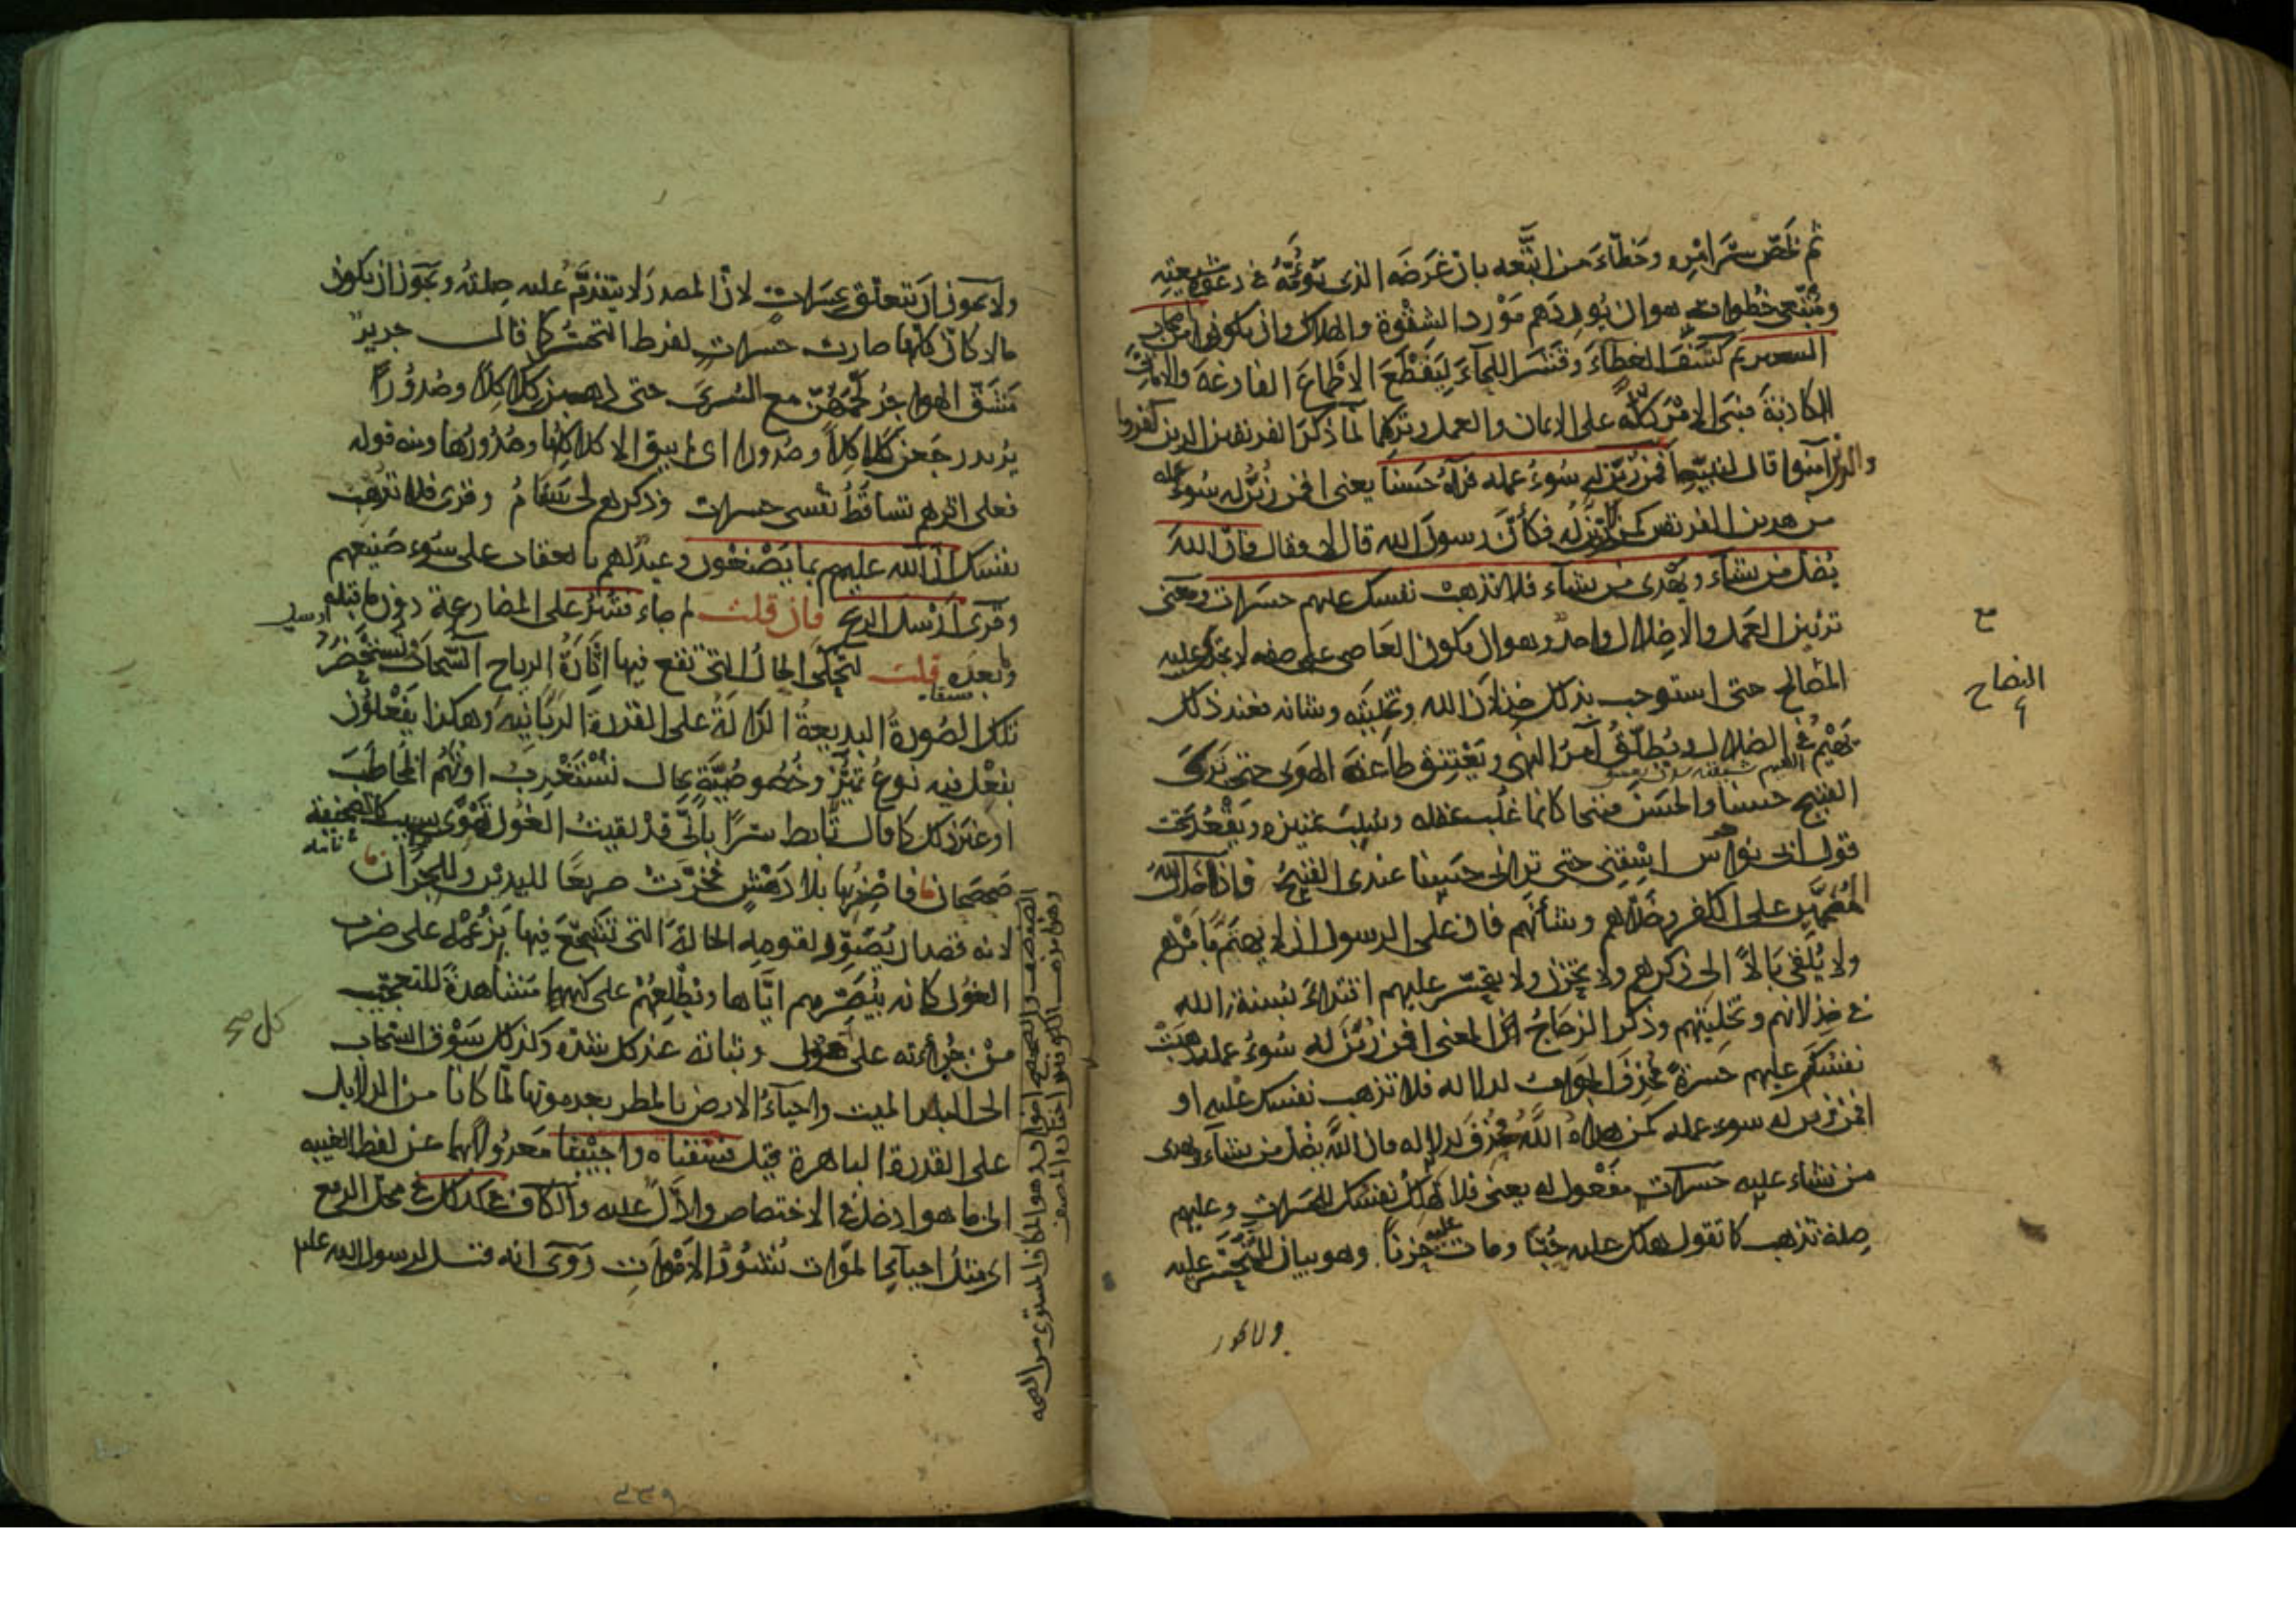 ثم لخص سر امره وخطاء من اتبعه بان غرضه الذى يؤمه فى دعوة شيعته
ومتبعى خطواته هو ان يوردهم مورد الشقوة والهلاك وان يكونوا من اصحاب
السعير ثم كشف الغطاء وقشر اللحاء ليقطع الاطماع الفارغة والامانى
الكاذبة فبنى الامر كله على الايمان والعمل وتركهما لما ذكر الفريقين الذين كفروا
والذين آمنوا قال لنبيه افمن زين له سوء عمله فرآه حسنا يعنى افمن زين له سوء عمله
من هذين الفريقين كمن لم يزين له فكأن رسول الله قال لا فقال فان الله
يضل من يشاء ويهدى من يشاء فلا تذهب نفسك عليهم حسرات ومعنى
تزيين العمل والاضلال واحد وهو ان يكون العاصى على صفة لا تجدى عليه
المصالح حتى استوجب بذلك خذلان الله وتخليته وشانه فعند ذلك
يهيم فى الضلال ويطلق آمر النهى ويعتنق طاعة الهوى حتى يرى
القبيح حسنا والحسن قبيحا كانما غلب عقله وسلب تمييزه ويقعد تحت
قول ابى نواس اسقنى حتى ترانى حسنا عندى القبيح فاذا خذل الله
المصممين على الكفر وخلاهم وشأنهم فان على الرسول ان لا يهتم بامرهم
ولا يلقى بالا الى ذكرهم ولا يحزن ولا يتحسر عليهم اقتداء بسنة الله
فى خذلانهم وتخليتهم وذكر الزجاج ان المعنى افمن زين له سوء عمله ذهبت
نفسك عليهم حسرة فحذف الجواب لدلالة فلا تذهب نفسك عليه او
افمن زين له سوء عمله كمن هداه الله فحذف لدلالة فان الله يضل من يشاء ويهدى
من يشاء عليه حسرات مفعول له يعنى فلا تهلك نفسك للحسرات وعليهم
صلة تذهب كما تقول هلك عليه حبا ومات عليه حزنا وهو بيان للمتحسر عليه
ولا يجوز
النصاح
ولا يجوز ان يتعلق بحسرات لان المصدر لا يتقدم عليه صلته ويجوز ان يكون
حالا كان كلها صارت حسرات لفرط التحسر كما قال جرير
مشق الهواجر لحمهن مع السرى حتى ذهبن كلاكلا وصدورا
يريد رجعن كلاكلا وصدورا اى لم يبق الا كلاكلها وصدورها ومنه قوله
فعلى اثرهم تساقط نفسى حسرات وذكرهم لى سقام وقرى فلا تذهب
نفسك ان الله عليم بما يصنعون وعيد لهم بالعقاب على سوء صنيعهم
وقرى ارسل الريح فان قلت لم جاء فتثير على المضارعة دون ما قبله
وما بعده قلت لتحكى الحال التى تقع فيها اثارة الرياح السحاب وتستحضر
تلك الصورة البديعة الدالة على القدرة الربانية وهكذا يفعلون
بفعل فيه نوع تميز وخصوصية بحال تستغرب او تهم المخاطب
او غير ذلك كما قال تأبط شرا بانى قد لقيت الغول تهوى بسهب كالصحيفة
صحصحان فاضربها بلا دهش فخرت صريعا لليدين وللجران
لانه قصد ان يصور لقومه الحالة التى تشجع فيها بزعمه على ضرب
الغول كانه يبصرهم اياها ويطلعهم على كنهها مشاهدة للتعجيب
من جرأته على هول وثباته عند كل شدة وكذلك سوق السحاب
الى البلد الميت واحياء الارض بالمطر بعد موتها لما كانا من الدلايل
على القدرة الباهرة قيل فسقناه واحيينا معدولا بهما عن لفظ الغيبة
الى ما هو ادخل فى الاختصاص وادل عليه والكاف فى كذلك فى محل الرفع
اى مثل احياء الموات نشور الاموات وروى انه قيل لرسول الله عليه
كل صح